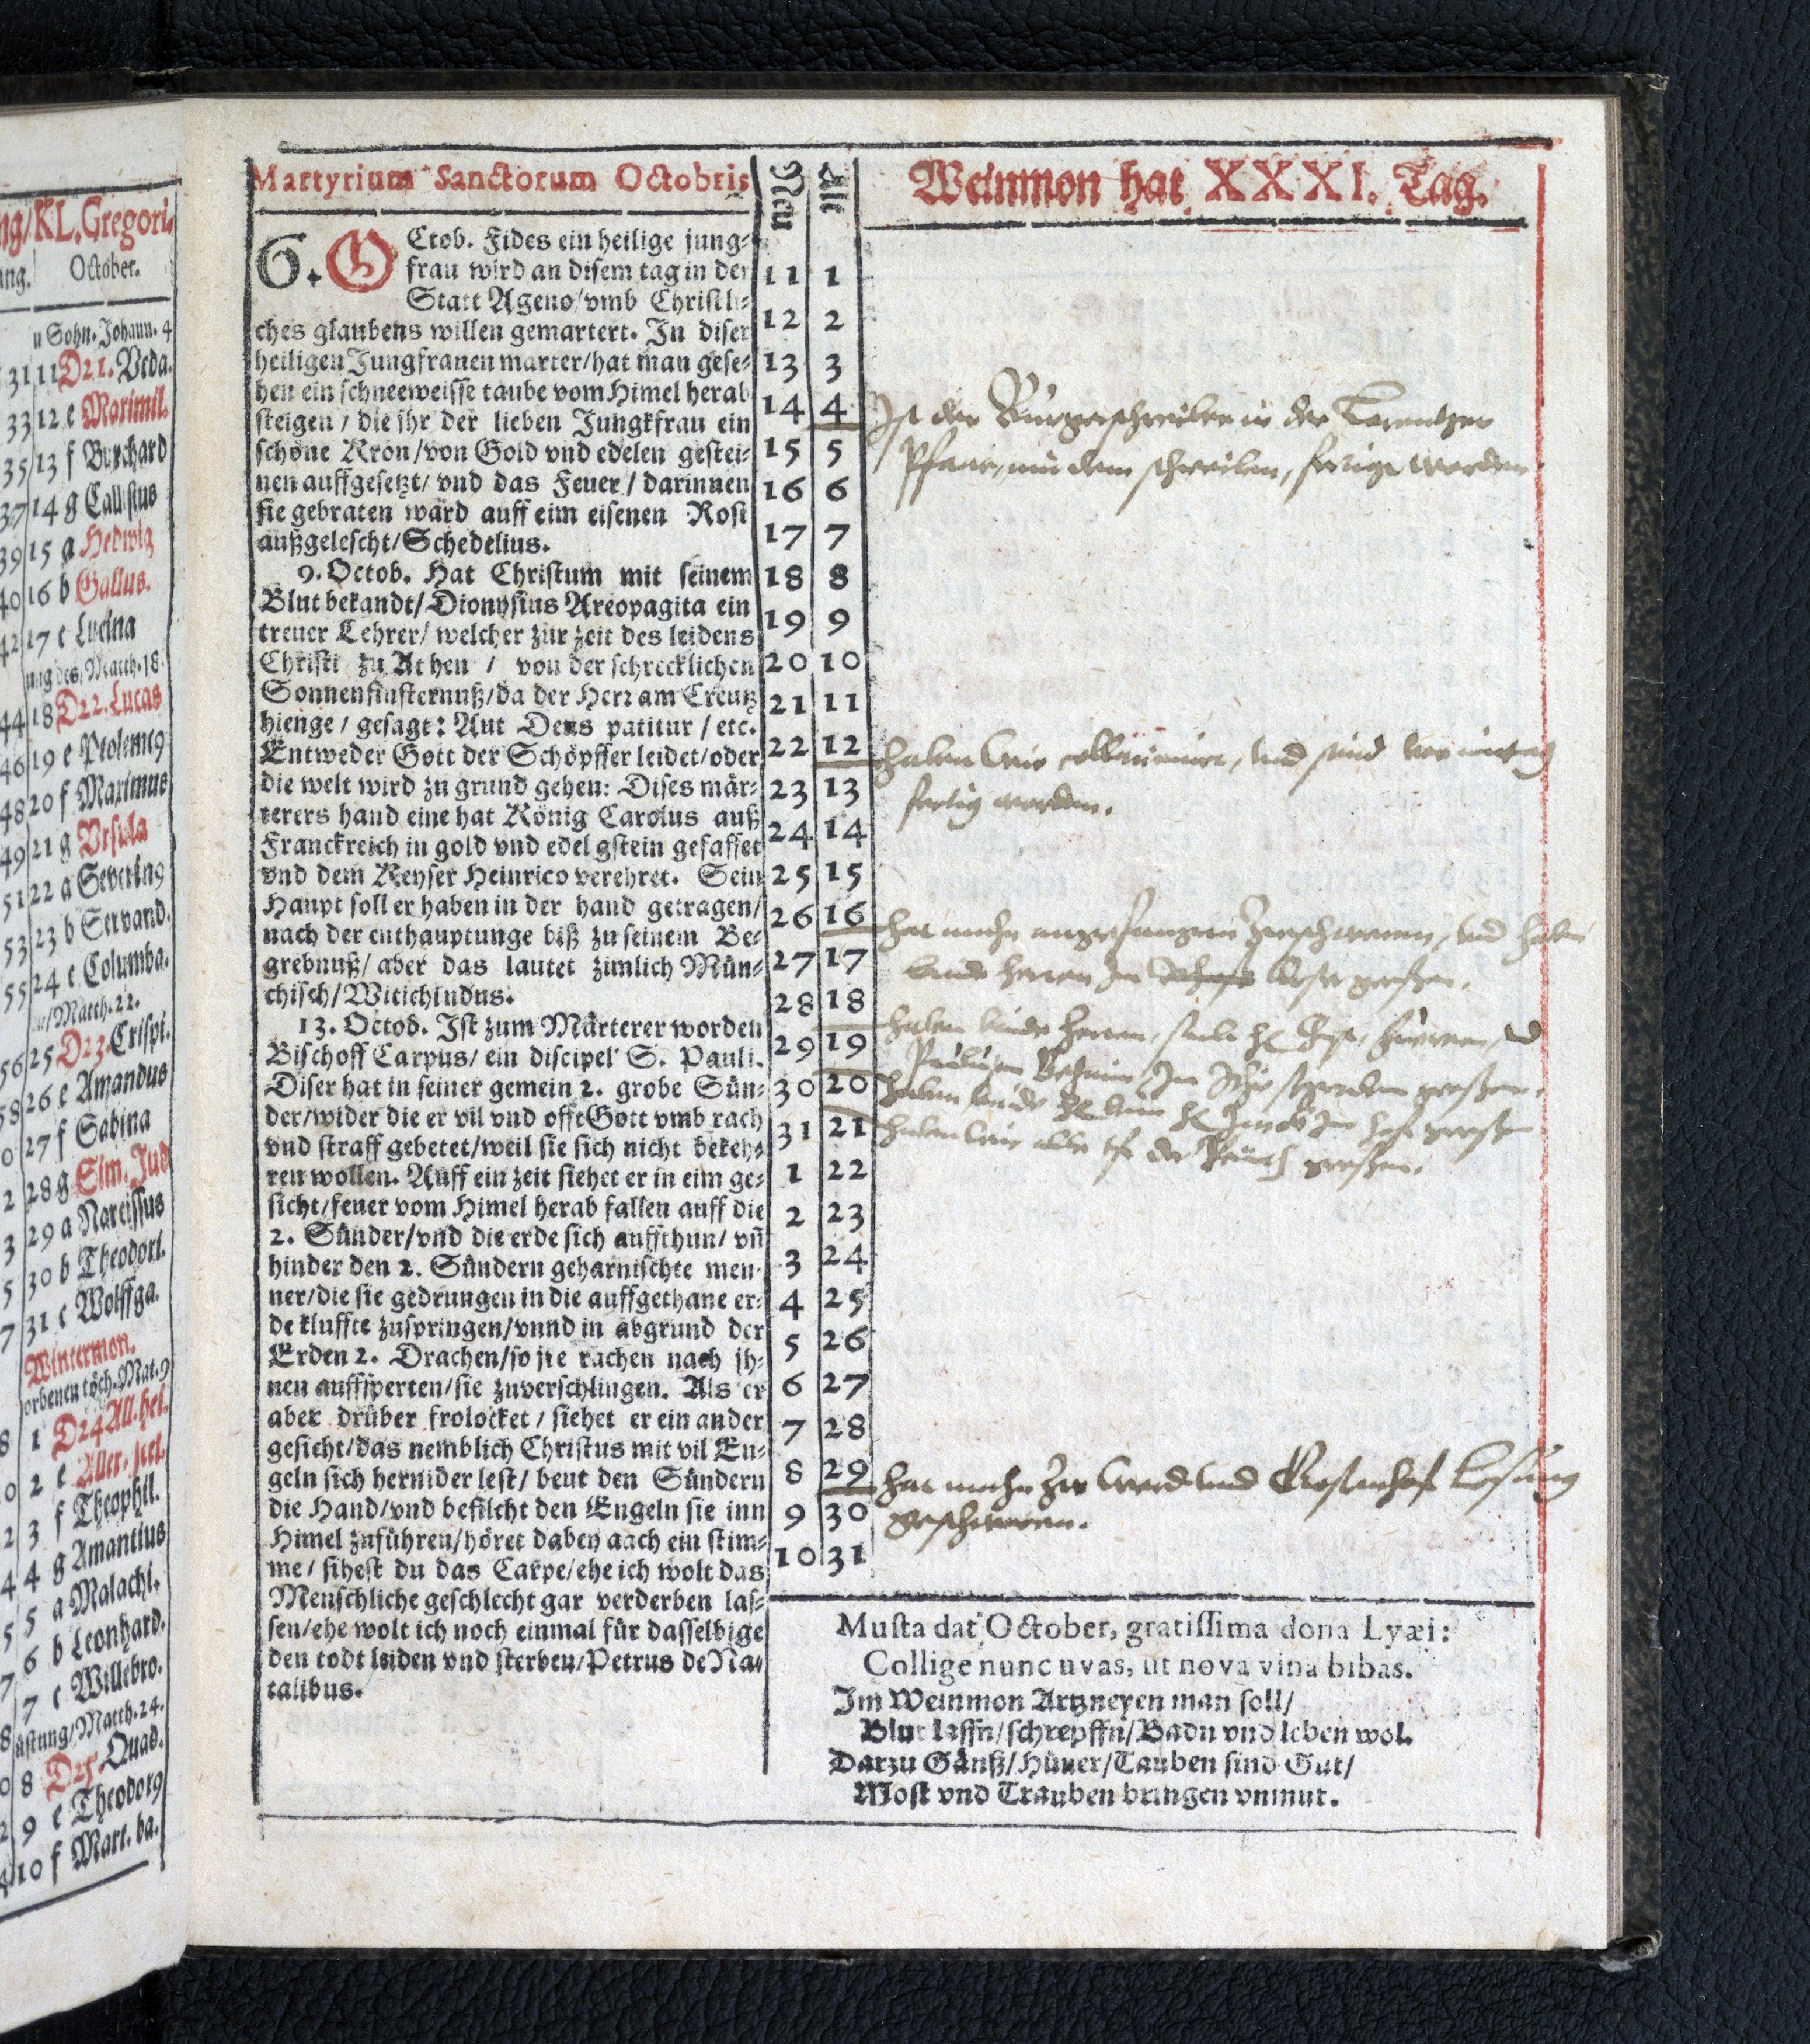 ng/KL.Gregori.
ang. October.
n Sohn. Johann. 4
31 11 D21. Veda.
33 12 e Maximil.
35 13 f Burchard
37 14 g Calistus
39 15 a Hedwig
40 16 b Gallus.
42 17 c Lucina
ung des, Matth. 18.
44 18 D22. Lucas
46 19 e Ptoleme9
48 20 f Maximus
49 21 g Vrsula
51 22 a Severin9
53 23 b Servand.
55 24 c Columba.
/Matth. 22.
56 25 D23. Crispi.
58 26 e Amandus
0 27 f Sabina
2 28 g Sim. Jud
3 29 a Narcissus
5 30 b Theodori.
7 31 c Wolffga.
Wintermon.
orbenen töch. Mat. 9
8 1 D24 All. hel.
0 2 e Aller. seel.
2 3 f Theophil.
4 4 g Amantius
5 5 a Malachi.
7 6 b Leonhard.
8 7 c Willebro.
üstung/Matth. 24.
0 8 D25. Quad.
2 9 e Theodor9
4 10 f Mart. ba.
Martyrium Sanctorum Octobris
6. OCtob. Fides ein heilige jung-
frau wird an disem tag in der
Statt Ageno/vmb Christli-
ches glaubens willen gemartert. In diser
heiligen Jungfrauen marter/hat man gese-
hen ein schneeweisse taube vom Himel herab
steigen / die ihr der lieben Jungkfrau ein
schöne Kron/von Gold vnd edelen gestei-
nen auffgesetzt/ vnd das Feuer / darinnen
sie gebraten wärd auff eim eisenen Rost
außgelescht/Schedelius.
9. Octob. Hat Christum mit seinem
Blut bekandt/Dionysius Areopagita ein
treuer Lehrer/ welcher zur zeit des leidens
Christi zu Athen / von der schrecklichen
Sonnenfinsternuß/da der Herr am Creutz
hienge / gesagt: Aut Deus patitur / etc.
Entweder Gott der Schöpffer leidet/oder
die welt wird zu grund gehen: Dises mär-
terers hand eine hat König Carolus auß
Franckreich in gold vnd edel gstein gefasset
vnd dem Keyser Heinrico verehret. Sein
Haupt soll er haben in der hand getragen/
nach der enthauptunge biß zu seinem Be-
grebnuß/ aber das lautet zimlich Mün-
chisch/Witichindus.
13. Octob. Ist zum Märterer worden
Bischoff Carpus/ ein discipel S. Pauli.
Diser hat in seiner gemein 2. grobe Sün-
der/wider die er vil vnd offt Gott vmb rach
vnd straff gebetet/weil sie sich nicht bekeh-
ren wollen. Auff ein zeit siehet er in eim ge-
sicht/feuer vom Himel herab fallen auff die
2. Sünder/vnd die erde sich auffthun/ vñ
hinder den 2. Sündern geharnischte men-
ner/die sie gedrungen in die auffgethane er-
de kluffte zuspringen/vnnd in abgrund der
Erden 2. Drachen/so jre rachen nach ih-
nen auffsperten/sie zuverschlingen. Als er
aber drüber frolocket / siehet er ein ander
gesicht/das nemblich Christus mit vil En-
geln sich hernider lest/ beut den Sündern
die Hand/vnd befilcht den Engeln sie inn
Himel zuführen/höret dabey auch ein stim-
me/ sihest du das Carpe/ehe ich wolt das
Menschliche geschlecht gar verderben las-
sen/ehe wolt ich noch einmal für dasselbige
den todt leiden vnd sterben/Petrus de Na-
talibus.
New Alt
11 1
12 2
13 3
14 4
15 5
16 6
17 7
18 8
19 9
20 10
21 11
22 12
23 13
24 14
25 15
26 16
27 17
28 18
29 19
30 20
31 21
1 22
2 23
3 24
4 25
5 26
6 27
7 28
8 29
9 30
10 31
Weinmon hat XXXI. Tag.
Ist der Burgerschreiber in der Lorentzer
Pfarr, mit dem schreiben, fertig worden.
haben wir und sind
fertig worden.
hat mehr angefangen und haben
beide herren Im
haben beide Herren,
Im
haben beide
haben wir alle
hat mehr und
geschworen.
Musta dat October, gratissima dona Lyæi:
Collige nunc uvas, ut nova vina bibas.
Im Weinmon Artzneyen man soll/
Blut lassn/schrepffn/Badn vnd leben wol.
Darzu Gänß/Hüner/Tauben sind Gut/
Most vnd Trauben bringen vnmut.